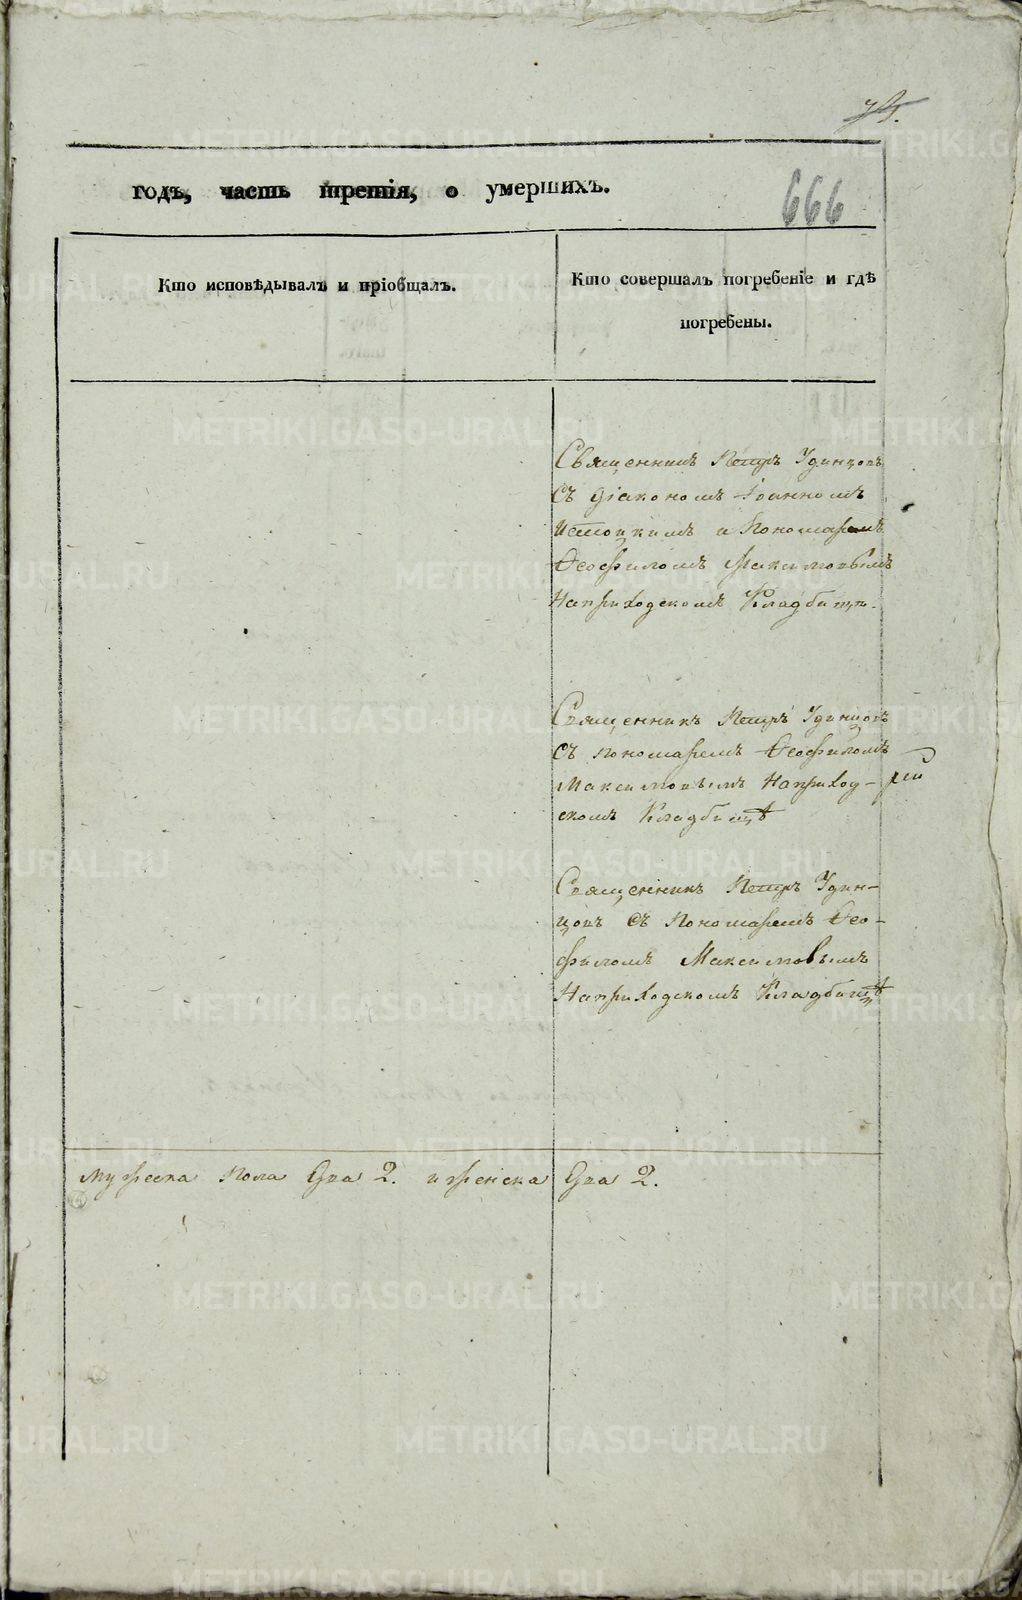 годъ, часть третія, о умершихъ.
666
Кто исповѣдывалъ и пріобщалъ.
Кто совершалъ погребеніе и гдѣ
погребены.
Священникъ Петръ Удинцовъ
съ діакономъ Іоанномъ
и Пономаремъ
Ѳеофиломъ Максимовымъ
Наприходскомъ Кладбищѣ.
Священникъ Петръ Удинцовъ
съ пономаремъ Ѳеофиломъ
Максимовымъ Наприход-
скомъ Кладбищѣ
Священникъ Петръ Удин-
цовъ съ пономаремъ Ѳео-
филомъ Максимовымъ
Наприходскомъ Кладбищѣ
мужеска пола Два 2. и женска Два 2.
METRIKI.GASO-URAL.RU